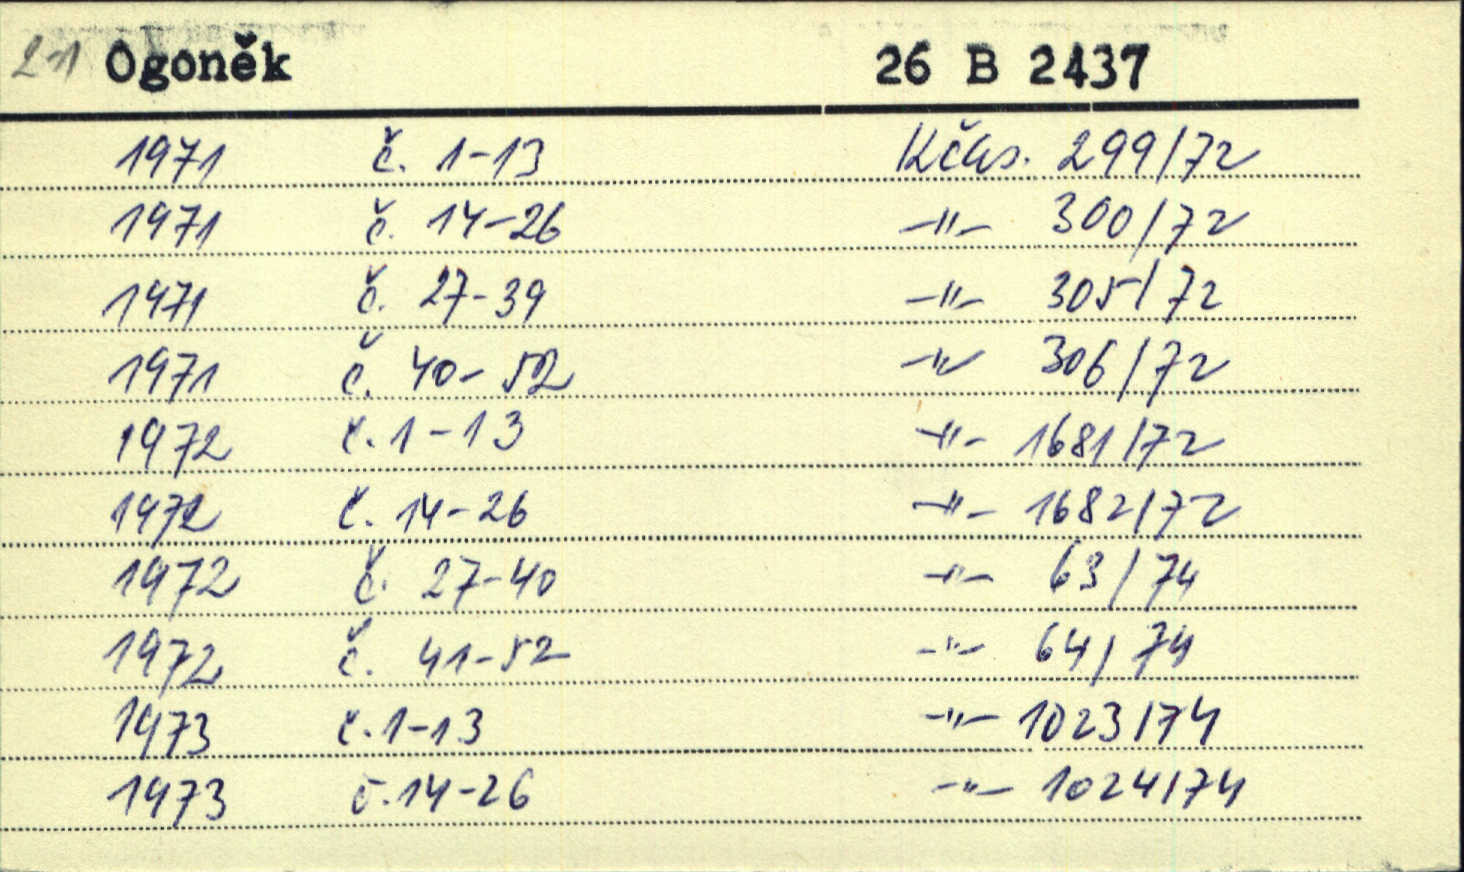 21 Ogoněk 26 B 2437
1971 č. 1-13 Kčas. 299/72
1971 č. 14-26 -"- 300/72
1971 č. 27-39 -"- 305/72
1971 č. 40-52 -"- 306/72
1972 č. 1-13 -"- 1681/72
1972 č. 14-26 -"- 1682/72
1972 č. 27-40 -"- 63/74
1972 č. 41-52 -"- 64/74
1973 č. 1-13 -"- 1023/74
1973 č. 14-26 -"- 1024/74